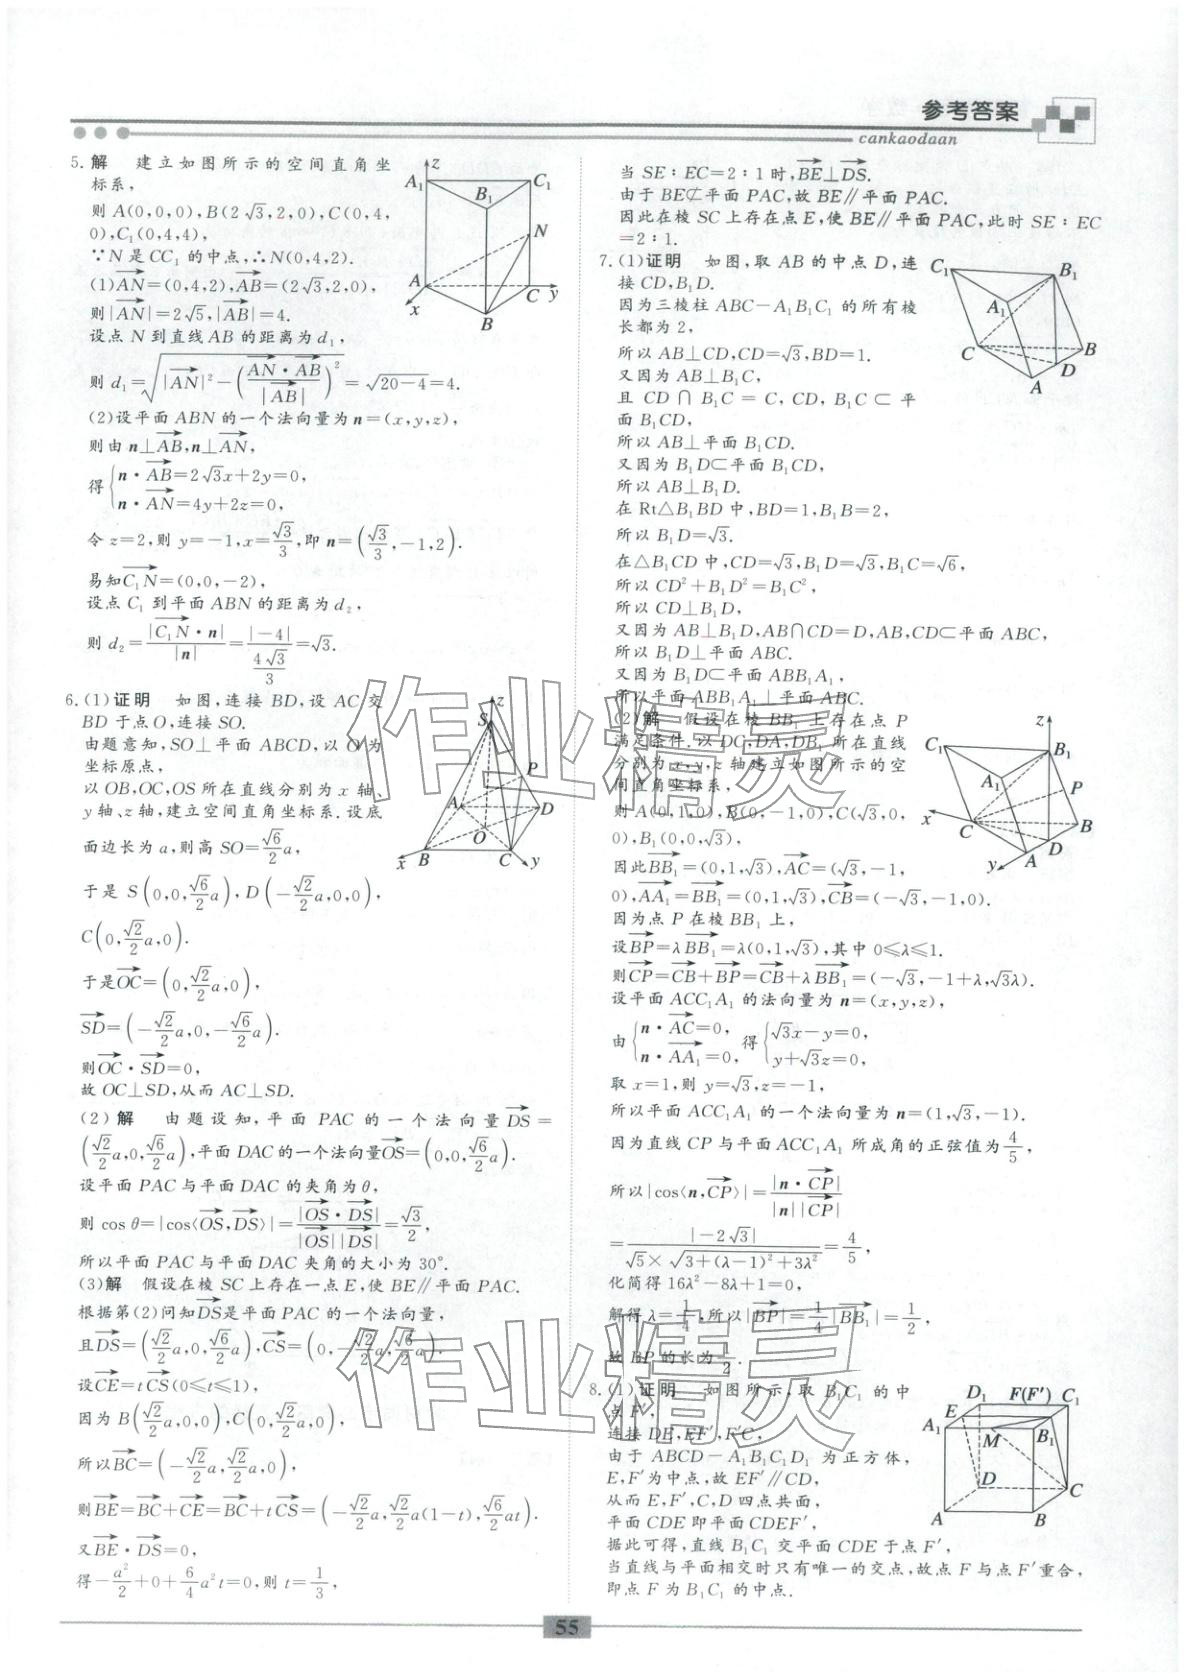 参考答案
cankaodaan
5. 解 建立如图所示的空间直角坐
标系,
则 A(0,0,0),B(2√3,2,0),C(0,4,
0),C₁(0,4,4),
∵N 是 CC₁ 的中点,∴N(0,4,2).
(1)AN→=(0,4,2),AB→=(2√3,2,0),
则|AN→|=2√5,|AB→|=4.
设点 N 到直线 AB 的距离为 d₁,
则 d₁=√(|AN→|²-(AN→·AB→/|AB→|)²)=√(20-4)=4.
(2)设平面 ABN 的一个法向量为 n=(x,y,z),
则由 n⊥AB→,n⊥AN→,
得{n·AB→=2√3x+2y=0,
n·AN→=4y+2z=0,
令 z=2,则 y=-1,x=√3/3,即 n=(√3/3,-1,2).
易知C₁N→=(0,0,-2),
设点 C₁ 到平面 ABN 的距离为 d₂,
则 d₂=|C₁N→·n|/|n|=|-4|/(4√3/3)=√3.
6. (1)证明 如图,连接 BD,设 AC 交
BD 于点 O,连接 SO.
由题意知,SO⊥平面 ABCD,以 O 为
坐标原点,
以 OB,OC,OS 所在直线分别为 x 轴、
y 轴、z 轴,建立空间直角坐标系.设底
面边长为 a,则高 SO=√6/2a,
于是 S(0,0,√6/2a),D(-√2/2a,0,0),
C(0,√2/2a,0).
于是OC→=(0,√2/2a,0),
SD→=(-√2/2a,0,-√6/2a).
则OC→·SD→=0,
故 OC⊥SD,从而 AC⊥SD.
(2) 解 由题设知,平面 PAC 的一个法向量DS→=
(√2/2a,0,√6/2a),平面 DAC 的一个法向量OS→=(0,0,√6/2a).
设平面 PAC 与平面 DAC 的夹角为 θ,
则 cos θ=|cos⟨OS→,DS→⟩|=|OS→·DS→|/(|OS→||DS→|)=√3/2,
所以平面 PAC 与平面 DAC 夹角的大小为 30°.
(3)解 假设在棱 SC 上存在一点 E,使 BE∥平面 PAC.
根据第(2)问知DS→是平面 PAC 的一个法向量,
且DS→=(√2/2a,0,√6/2a),CS→=(0,-√2/2a,√6/2a).
设CE→=tCS→(0≤t≤1),
因为 B(√2/2a,0,0),C(0,√2/2a,0),
所以BC→=(-√2/2a,√2/2a,0),
则BE→=BC→+CE→=BC→+tCS→=(-√2/2a,√2/2a(1-t),√6/2at).
又BE→·DS→=0,
得-a²/2+0+6/4a²t=0,则 t=1/3,
z
A₁
B₁
C₁
N
A
x
B
C
y
z
S
P
A
D
O
x
B
C
y
当 SE∶EC=2∶1 时,BE→⊥DS→.
由于 BE⊄平面 PAC,故 BE∥平面 PAC.
因此在棱 SC 上存在点 E,使 BE∥平面 PAC,此时 SE∶EC
=2∶1.
7. (1)证明 如图,取 AB 的中点 D,连
接 CD,B₁D.
因为三棱柱 ABC-A₁B₁C₁ 的所有棱
长都为 2,
所以 AB⊥CD,CD=√3,BD=1.
又因为 AB⊥B₁C,
且 CD∩B₁C=C,CD,B₁C⊂平
面 B₁CD,
所以 AB⊥平面 B₁CD.
又因为 B₁D⊂平面 B₁CD,
所以 AB⊥B₁D.
在 Rt△B₁BD 中,BD=1,B₁B=2,
所以 B₁D=√3.
在△B₁CD 中,CD=√3,B₁D=√3,B₁C=√6,
所以 CD²+B₁D²=B₁C²,
所以 CD⊥B₁D,
又因为 AB⊥B₁D,AB∩CD=D,AB,CD⊂平面 ABC,
所以 B₁D⊥平面 ABC.
又因为 B₁D⊂平面 ABB₁A₁,
所以平面 ABB₁A₁⊥平面 ABC.
(2)解 假设在棱 BB₁ 上存在点 P
满足条件.以 DC,DA,DB₁ 所在直线
分别为 x,y,z 轴建立如图所示的空
间直角坐标系,
则 A(0,1,0),B(0,-1,0),C(√3,0,
0),B₁(0,0,√3),
因此BB₁→=(0,1,√3),AC→=(√3,-1,
0),AA₁→=BB₁→=(0,1,√3),CB→=(-√3,-1,0).
因为点 P 在棱 BB₁ 上,
设BP→=λBB₁→=λ(0,1,√3),其中 0≤λ≤1.
则CP→=CB→+BP→=CB→+λBB₁→=(-√3,-1+λ,√3λ).
设平面 ACC₁A₁ 的法向量为 n=(x,y,z),
由{n·AC→=0,n·AA₁→=0, 得{√3x-y=0,y+√3z=0,
取 x=1,则 y=√3,z=-1,
所以平面 ACC₁A₁ 的一个法向量为 n=(1,√3,-1).
因为直线 CP 与平面 ACC₁A₁ 所成角的正弦值为4/5,
所以|cos⟨n,CP→⟩|=|n·CP→|/(|n||CP→|)
=|-2√3|/(√5×√(3+(λ-1)²+3λ²))=4/5,
化简得 16λ²-8λ+1=0,
解得 λ=1/4,所以|BP→|=1/4|BB₁→|=1/2,
故 BP 的长为1/2.
8. (1)证明 如图所示,取 B₁C₁ 的中
点 F′,
连接 DE,EF′,F′C,
由于 ABCD-A₁B₁C₁D₁ 为正方体,
E,F′为中点,故 EF′∥CD,
从而 E,F′,C,D 四点共面,
平面 CDE 即平面 CDEF′,
据此可得,直线 B₁C₁ 交平面 CDE 于点 F′,
当直线与平面相交时只有唯一的交点,故点 F 与点 F′重合,
即点 F 为 B₁C₁ 的中点.
C₁
B₁
A₁
C
B
D
A
z
C₁
B₁
A₁
P
x
C
B
D
y
A
D₁
F(F′)
C₁
E
A₁
M
B₁
D
C
A
B
作业精灵
作业精灵
55